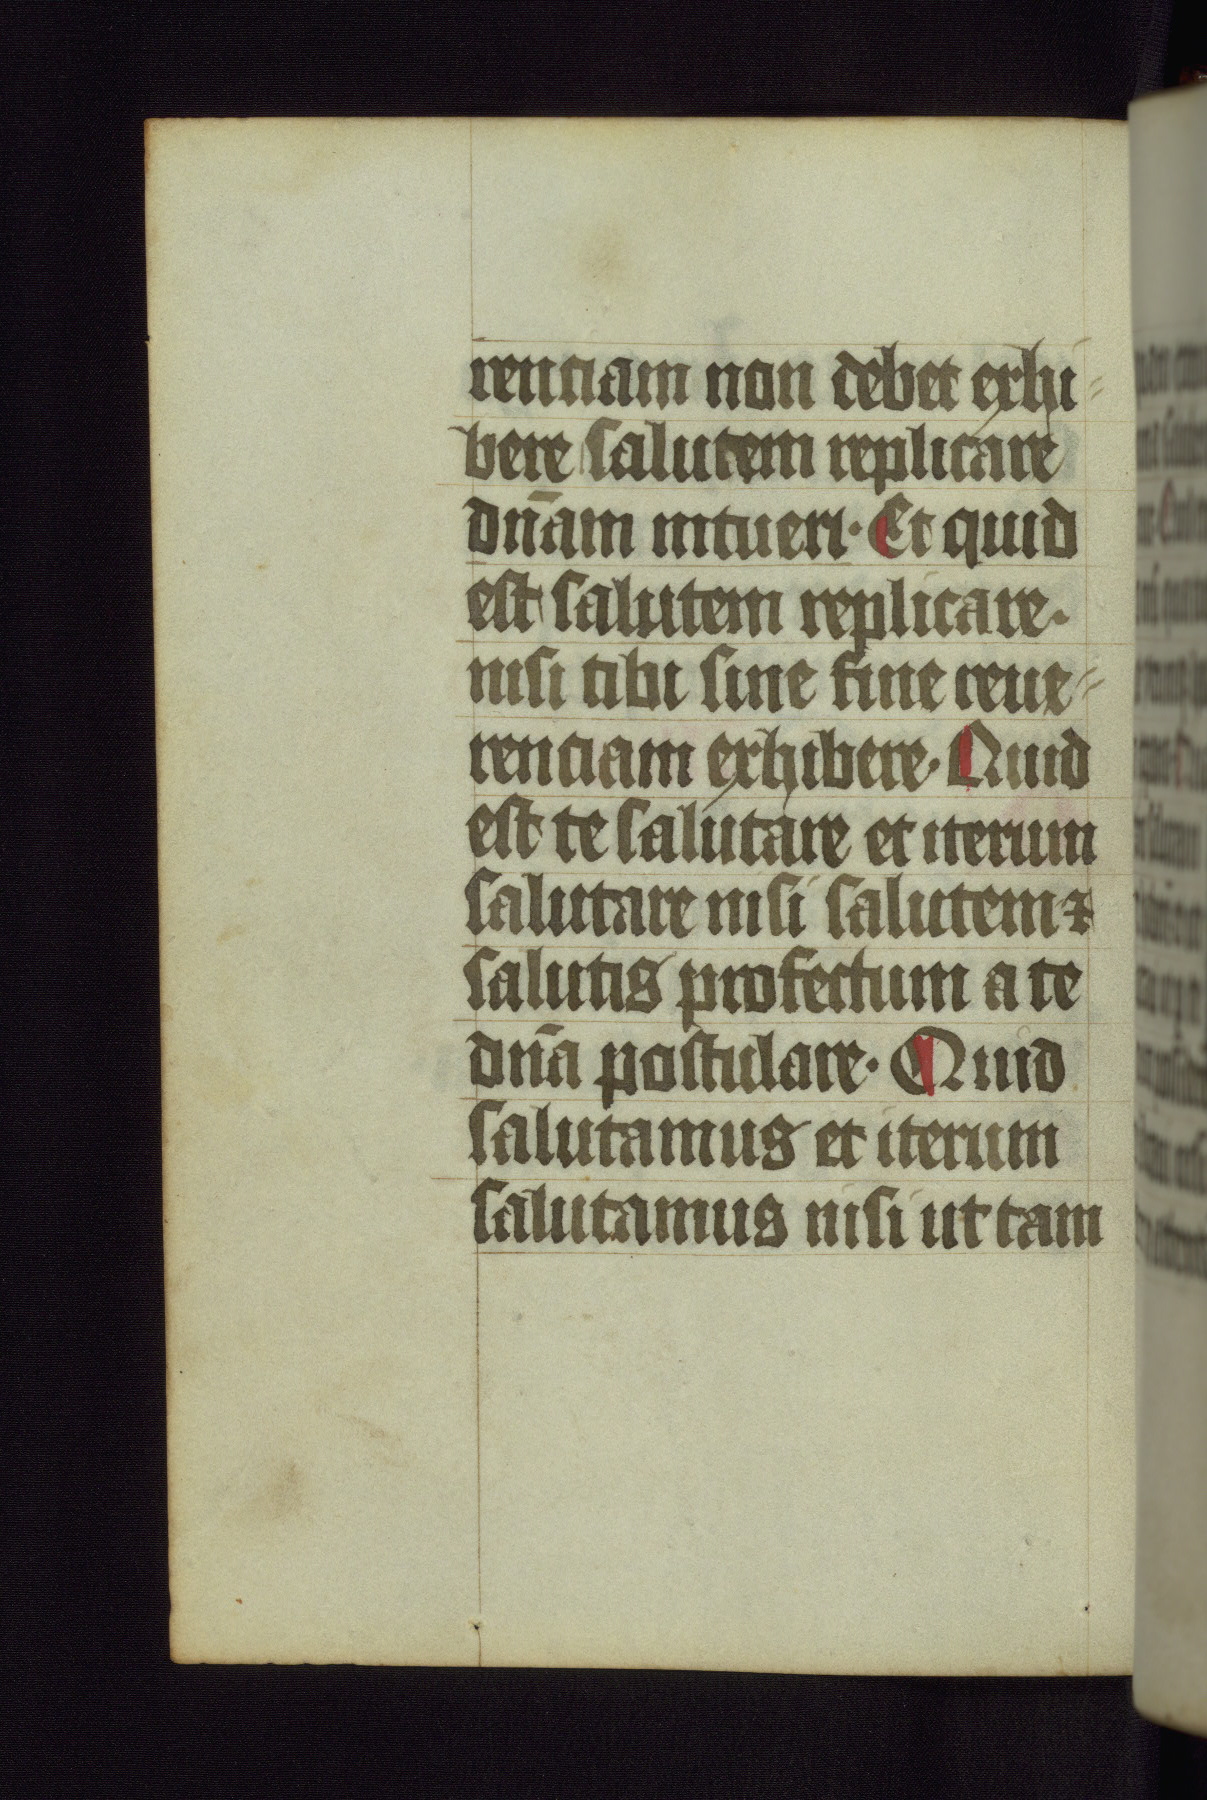 renciam non debet exhi⸗
bere salutem replicare
dn̄am intueri· Et quid
est salutem replicare·
nisi tibi sine fine reue⸗
renciam exhibere· Quid
est te salutare et iterum
salutare nisi salutem ⁊
salutis profectum a te
dn̄a postulare· Quid
salutamus et iterum
salutamus nisi ut tam